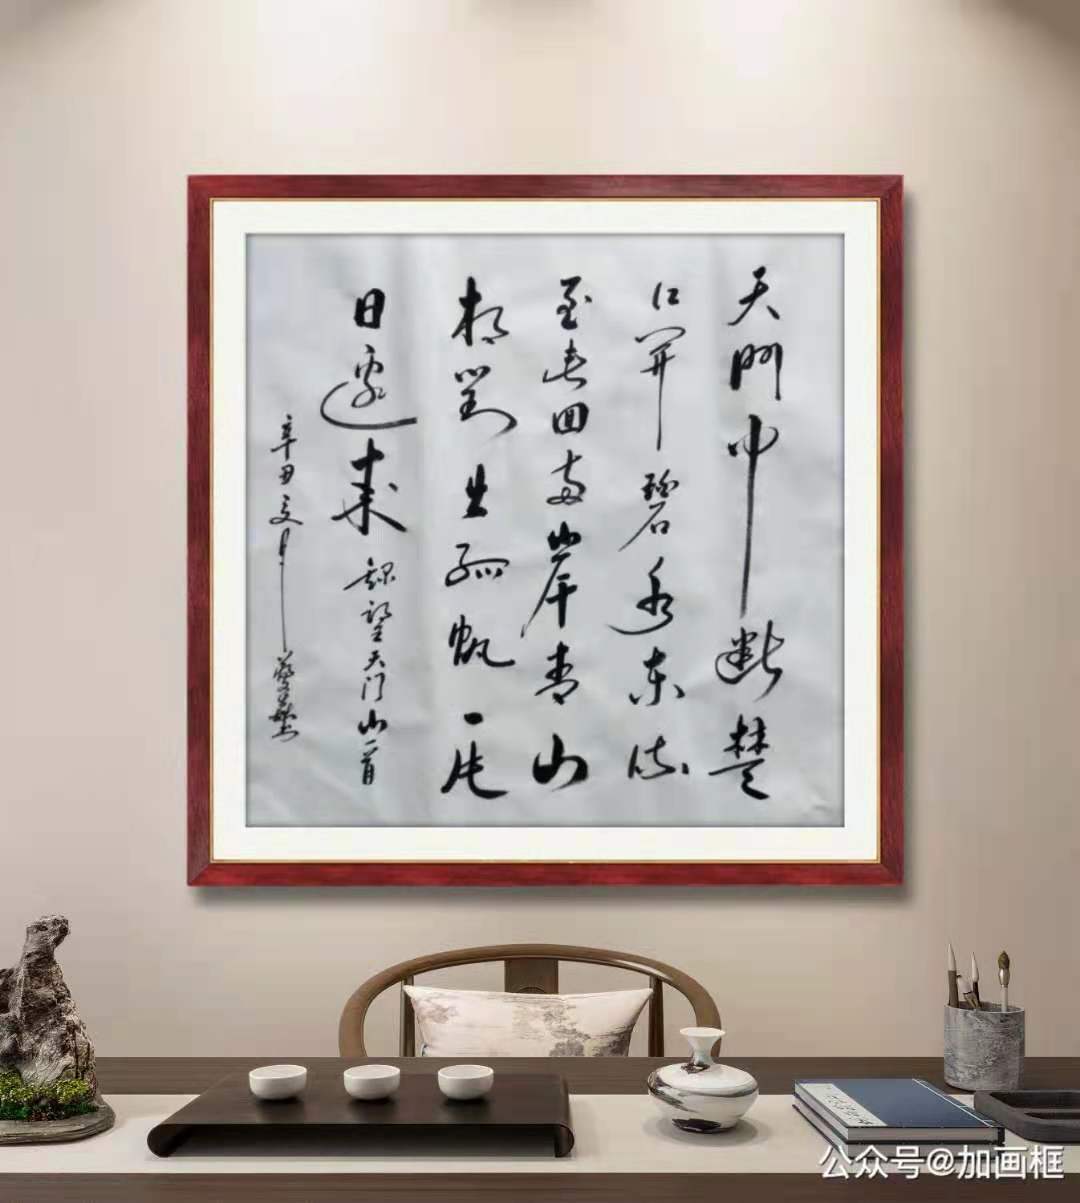 天門中断楚
江開碧水東流
至此回两岸青山
相對出孤帆一片
日邊来 録望天门山一首
辛丑夏月
公众号@加画框